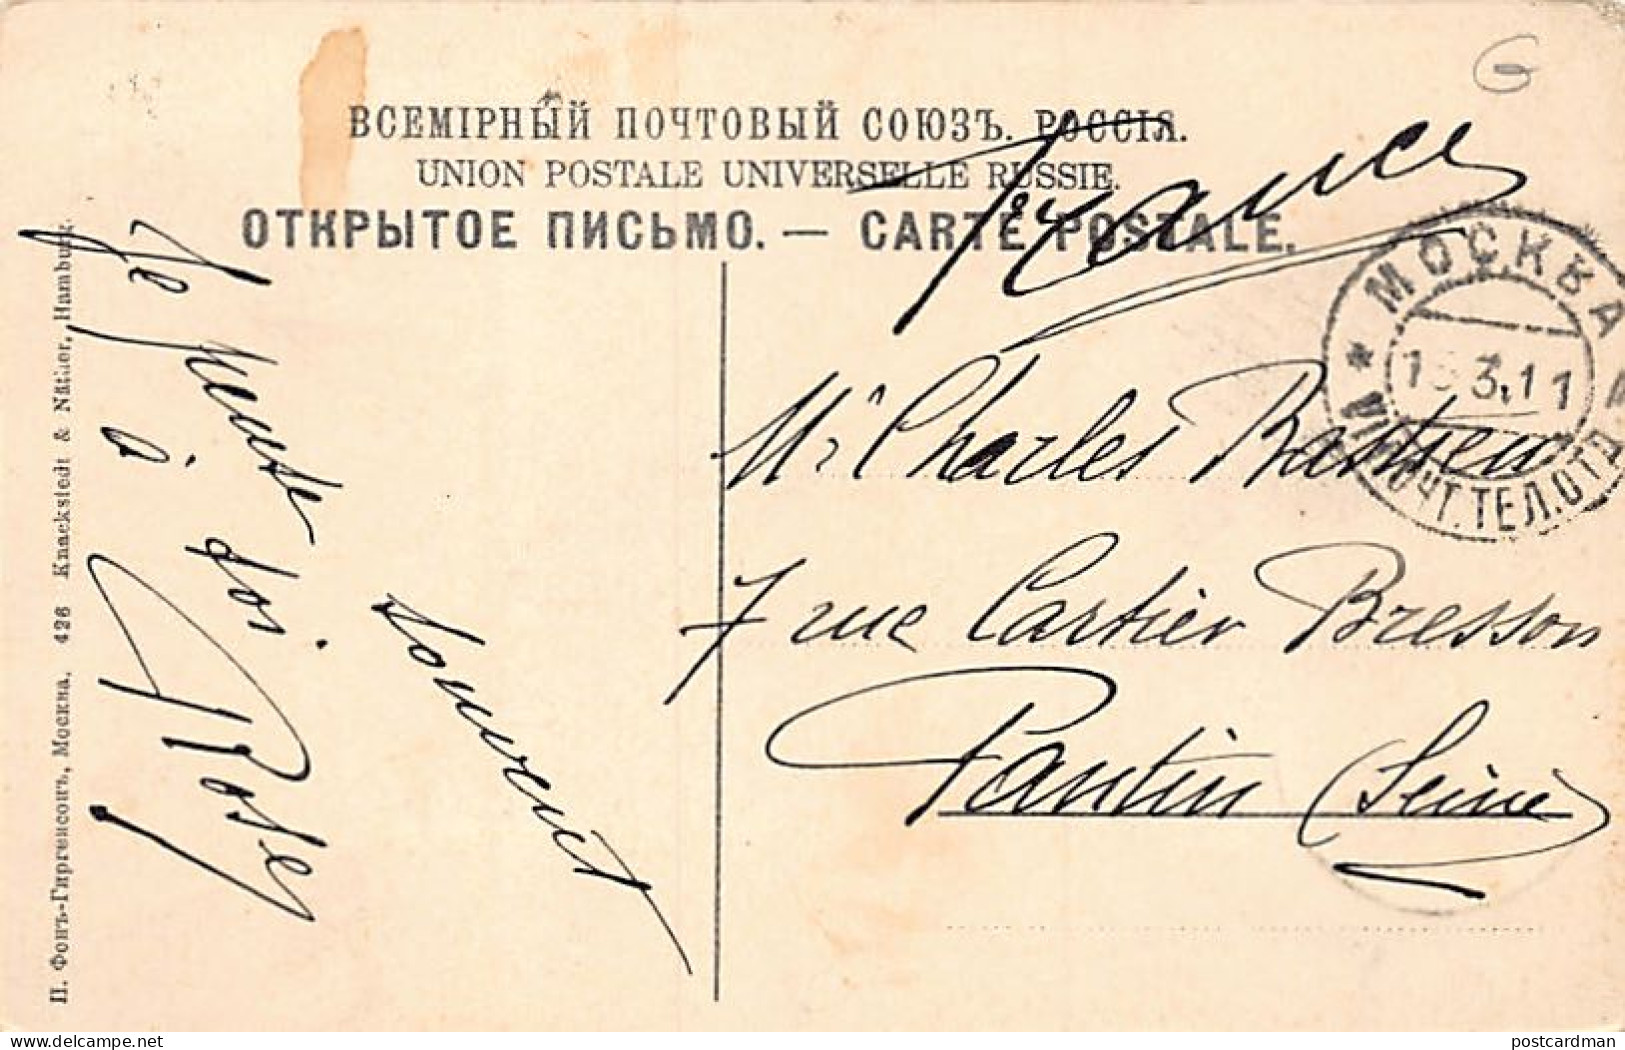 G
ВСЕМІРНЫЙ ПОЧТОВЫЙ СОЮЗЪ. РОССІЯ.
UNION POSTALE UNIVERSELLE RUSSIE.
ОТКРЫТОЕ ПИСЬМО. — CARTE POSTALE.
France
МОСКВА
3.11
ПОЧТ.ТЕЛ.ОТД
Mr Charles Bastien
7 rue Cartier Bresson
Pantin (Seine)
Je pense à toi
souvent
П. Фонъ-Гиргенсонъ, Москва. 426 Knackstedt & Näther, Hamburg.
www.delcampe.net
postcardman